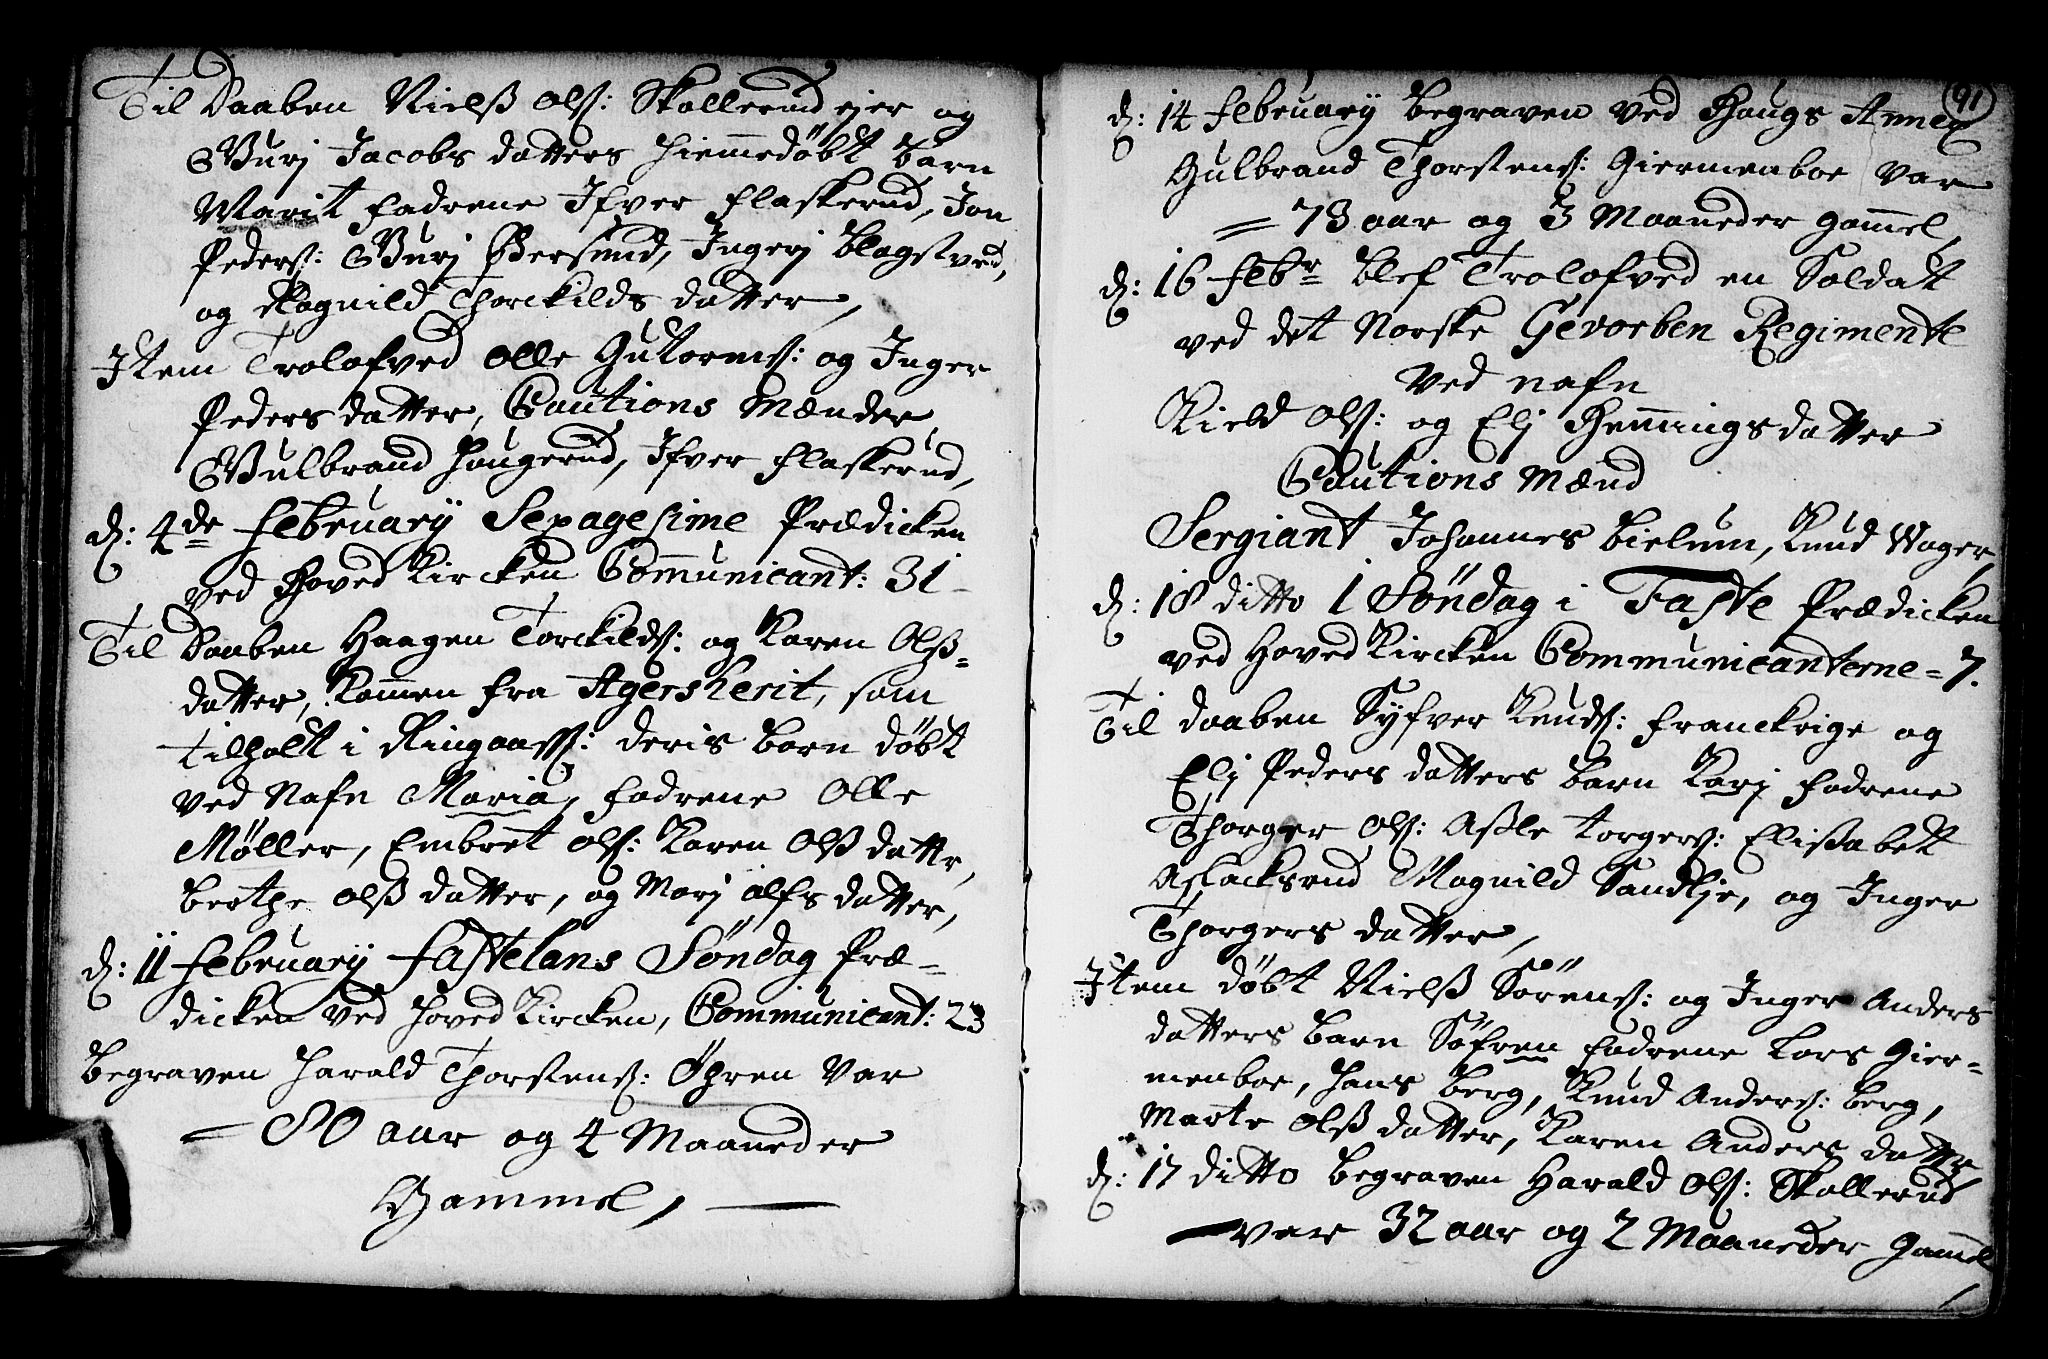 Til Daaben Nielß Ols: Skollerud ejer og
Gurj Jacobs datters hiemmedöbt barn
Marit fadrene Ifver Flaskerud, Jon
Peders: Gurj Bersund, Ingerj Blagstved,
og Ragnild Thorckilds datter,
Item Trolofved Olle Gutorms: og Inger
Peders datter, Cautions Mænder
Gulbrand Haugerud, Ifver Flaskerud,
d: 4de February Sexagesime Prædicken
ved Hoved Kircken Communicant: 31
Til Daaben Haagen Torckilds: og Karen Olß-
datter, Kommen fra Agersherit, som
tilholt i Ringaass: deris barn döbt
ved Nafn Maria, fadrene Olle
Møller, Embret Ols: Karen Olß dattr,
Berthe Olß datter, og Marj Alfs datter,
d: 11 February Fastelans Söndag Præ-
dicken ved Hoved Kircken, Communicant: 23
Begraven Harald Thorstens: Öhren Var
= 80 aar og 4 Maaneder
Gammel,
91
d: 14 February begraven ved Haugs Annex
Gulbrand Thorstens: Giermenboe Var
= 73 aar og 3 Maaneder gammel,
d: 16 Febr blef Trolofved en Soldat
ved det Norske Gevorben Regimente
Ved nafn
Kield Ols: og Elj Hemmingsdatter
Cautions Mænd
Sergiant Johannes Bielum, Knud Wager,
d: 18 ditto 1 Söndag i Faste Prædicken
ved Hoved Kircken Communicanterne = 7.
Til daaben Syfver Knuds: Franckrige og
Elj Peders datters barn Karj fadrene
Thorger Ols: Aßle Torgers: Elißabet
Aslacksrud Magnild Sandlje, og Inger
Thorgers datter,
Item döbt Nielß Sörens: og Inger Anders
datters barn Söfren fadrene Lars Gier-
menboe, Hans Berg, Knud Anders: Berg,
Marte Olß datter, Karen Anders dattr,
d: 17 ditto begraven Harald Ols: Skollerud
var 32 aar og 2 Maaneder gammel